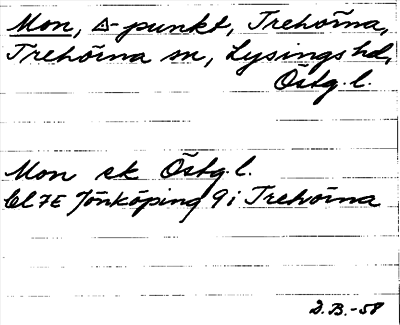 Mon, △-punkt, Trehörna,
Trehörna sn, Lysings hd,
Östg. l.
Mon ek Östg. l.
Bl 7E Jönköping 9 i Trehörna
D.B.-58